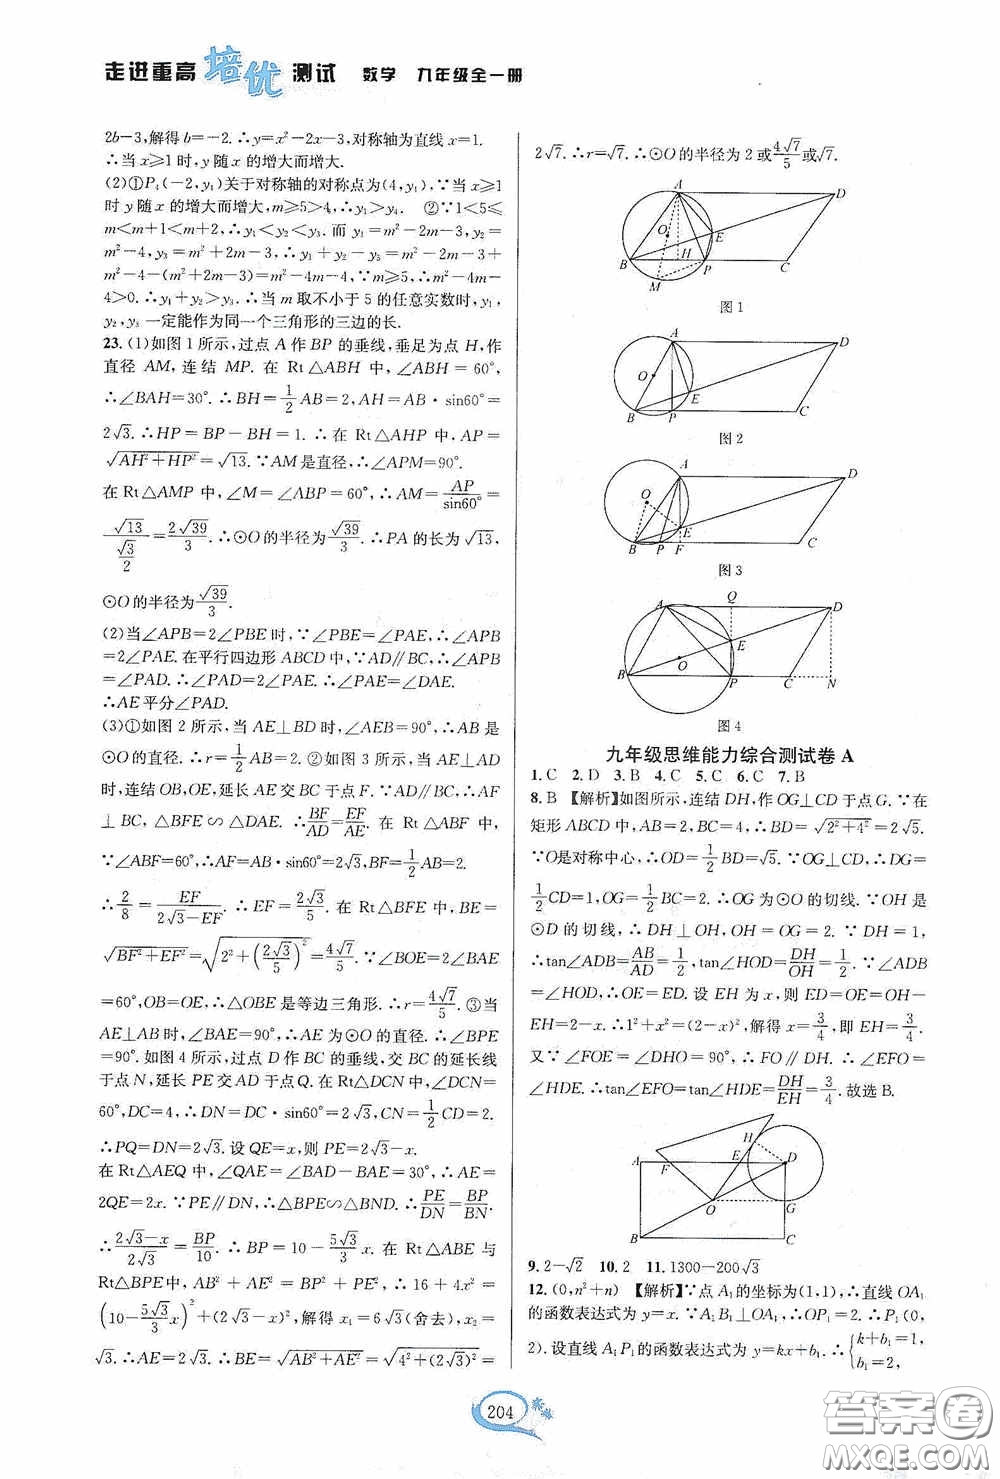 走进重高 培优 测试 数学 九年级全一册
2b-3,解得 b=-2.∴y=x²-2x-3,对称轴为直线 x=1.
∴当 x≥1 时,y 随 x 的增大而增大.
(2)①P₁(-2,y₁)关于对称轴的对称点为(4,y₁),∵当 x≥1
时 y 随 x 的增大而增大,m≥5>4,∴y₁>y₁. ②∵1<5≤
m<m+1<m+2,∴y₁<y₂<y₃. 而 y₁=m²-2m-3,y₂=
m²-4,y₃=m²+2m-3,∴y₁+y₂-y₃=m²-2m-3+
m²-4-(m²+2m-3)=m²-4m-4. ∵m≥5,∴m²-4m-
4>0.∴y₁+y₂>y₃.∴当 m 取不小于 5 的任意实数时,y₁,
y₂,y₃ 一定能作为同一个三角形的三边的长.
23. (1)如图 1 所示,过点 A 作 BP 的垂线,垂足为点 H,作
直径 AM,连结 MP. 在 Rt△ABH 中,∠ABH=60°,
∴∠BAH=30°.∴BH=1/2AB=2,AH=AB·sin60°=
2√3.∴HP=BP-BH=1.∴在 Rt△AHP 中,AP=
√(AH²+HP²)=√13.∵AM 是直径,∴∠APM=90°.
在 Rt△AMP 中,∠M=∠ABP=60°,∴AM=AP/sin60°=
√13/(√3/2)=2√39/3.∴⊙O 的半径为√39/3.∴PA 的长为√13,
⊙O 的半径为√39/3.
(2)当∠APB=2∠PBE 时,∵∠PBE=∠PAE,∴∠APB
=2∠PAE.在平行四边形 ABCD 中,∵AD∥BC,∴∠APB
=∠PAD.∴∠PAD=2∠PAE.∴∠PAE=∠DAE.
∴AE 平分∠PAD.
(3)①如图 2 所示,当 AE⊥BD 时,∠AEB=90°,∴AB 是
⊙O 的直径.∴r=1/2AB=2. ②如图 3 所示,当 AE⊥AD
时,连结 OB,OE,延长 AE 交 BC 于点 F. ∵AD∥BC,∴AF
⊥BC,△BFE∽△DAE.∴BF/AD=EF/AE. 在 Rt△ABF 中,
∵∠ABF=60°,∴AF=AB·sin60°=2√3,BF=1/2AB=2.
∴2/8=EF/(2√3-EF).∴EF=2√3/5. 在 Rt△BFE 中,BE=
√(BF²+EF²)=√(2²+(2√3/5)²)=4√7/5. ∵∠BOE=2∠BAE
=60°,OB=OE,∴△OBE 是等边三角形.∴r=4√7/5. ③当
AE⊥AB 时,∠BAE=90°,∴AE 为⊙O 的直径.∴∠BPE
=90°. 如图 4 所示,过点 D 作 BC 的垂线,交 BC 的延长线
于点 N,延长 PE 交 AD 于点 Q. 在 Rt△DCN 中,∠DCN=
60°,DC=4,∴DN=DC·sin60°=2√3,CN=1/2CD=2.
∴PQ=DN=2√3. 设 QE=x,则 PE=2√3-x.
在 Rt△AEQ 中,∠QAE=∠BAD-BAE=30°,∴AE=
2QE=2x. ∵PE∥DN,∴△BPE∽△BND.∴PE/DN=BP/BN.
∴(2√3-x)/2√3=BP/10.∴BP=10-5√3/3x. 在 Rt△ABE 与
Rt△BPE中,AB²+AE²=BP²+PE²,∴16+4x²=
(10-5√3/3x)²+(2√3-x)²,解得 x₁=6√3(舍去),x₂=
√3.∴AE=2√3.∴BE=√(AB²+AE²)=√(4²+(2√3)²)=
2√7.∴r=√7.∴⊙O 的半径为 2 或4√7/5或√7.
A D O E B H P C M
图 1
A D O E B P C
图 2
A D O E B P F C
图 3
A Q D E O B P C N
图 4
九年级思维能力综合测试卷 A
1. C 2. D 3. B 4. C 5. C 6. C 7. B
8. B 【解析】如图所示,连结 DH,作 OG⊥CD 于点 G. ∵在
矩形 ABCD 中,AB=2,BC=4,∴BD=√(2²+4²)=2√5.
∵O是对称中心,∴OD=1/2BD=√5. ∵OG⊥CD,∴DG=
1/2CD=1,OG=1/2BC=2.∴OG 为⊙O 的切线.∵OH 是
⊙D 的切线,∴DH⊥OH,OH=OG=2. ∵DH=1,
∴tan∠ADB=AB/AD=1/2,tan∠HOD=DH/OH=1/2. ∵∠ADB
=∠HOD,∴OE=ED. 设 EH 为 x,则 ED=OE=OH-
EH=2-x.∴1²+x²=(2-x)²,解得 x=3/4,即 EH=3/4.
又∵∠FOE=∠DHO=90°,∴FO∥DH.∴∠EFO=
∠HDE.∴tan∠EFO=tan∠HDE=DH/EH=3/4. 故选 B.
A F E H D O G B C
9. 2-√2 10. 2 11. 1300-200√3
12. (0,n²+n) 【解析】∵点 A₁的坐标为(1,1),∴直线 OA₁
的函数表达式为 y=x. ∵A₁B₁⊥OA₁,∴OP₁=2.∴P₁(0,
2). 设直线 A₁P₁的函数表达式为 y=kx+b₁.∴{k+b₁=1, b₁=2,
204
答案圈
MXQE.COM